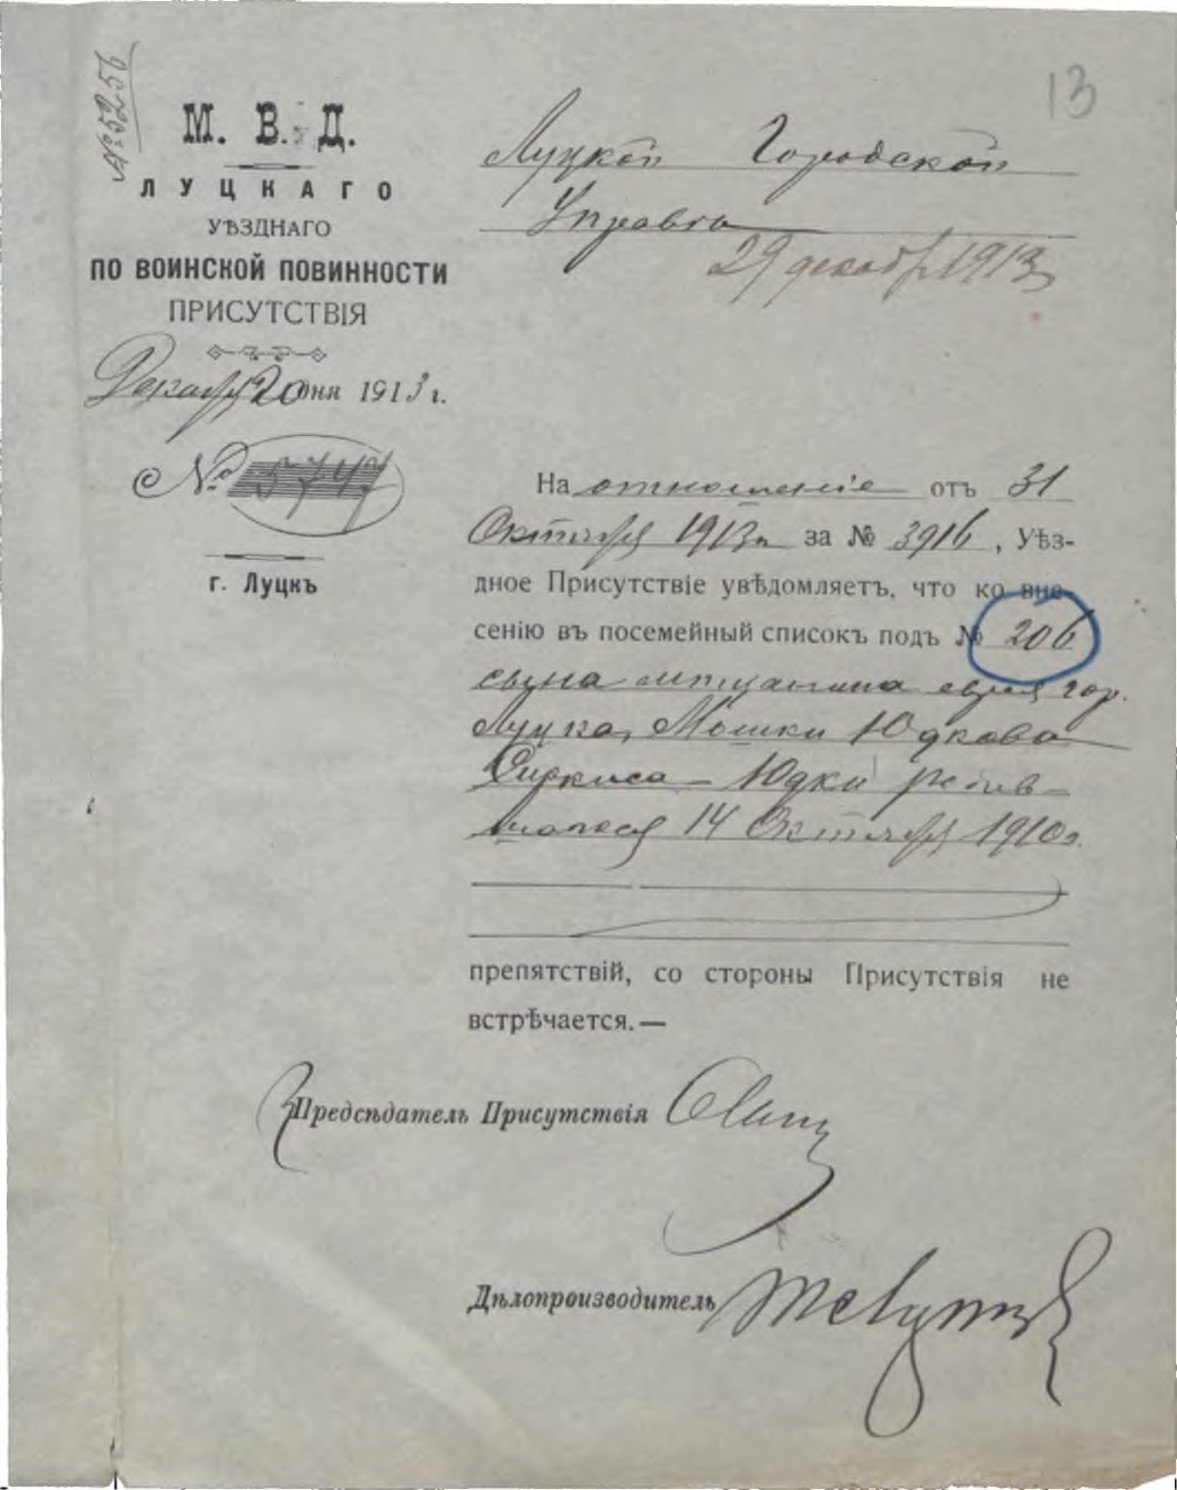 13
М. В. Д.
ЛУЦКАГО
УѢЗДНАГО
ПО ВОИНСКОЙ ПОВИННОСТИ
ПРИСУТСТВІЯ
Декабря 20 дня 1913 г.
№ 5747
г. Луцкъ
Луцкой Городской
Управѣ
29 декабр 1913
На отношеніе отъ 31
Октября 1913 г. за № 3916, Уѣз-
дное Присутствіе увѣдомляетъ, что ко вне-
сенію въ посемейный списокъ подъ № 206
сына мѣщанина еврея гор.
Луцка, Мошки Юдкова
Сиркиса – Юдки родив-
шагося 14 Октября 1910 г.
препятствій, со стороны Присутствія не
встрѣчается.—
Предсѣдатель Присутствія
Дѣлопроизводитель